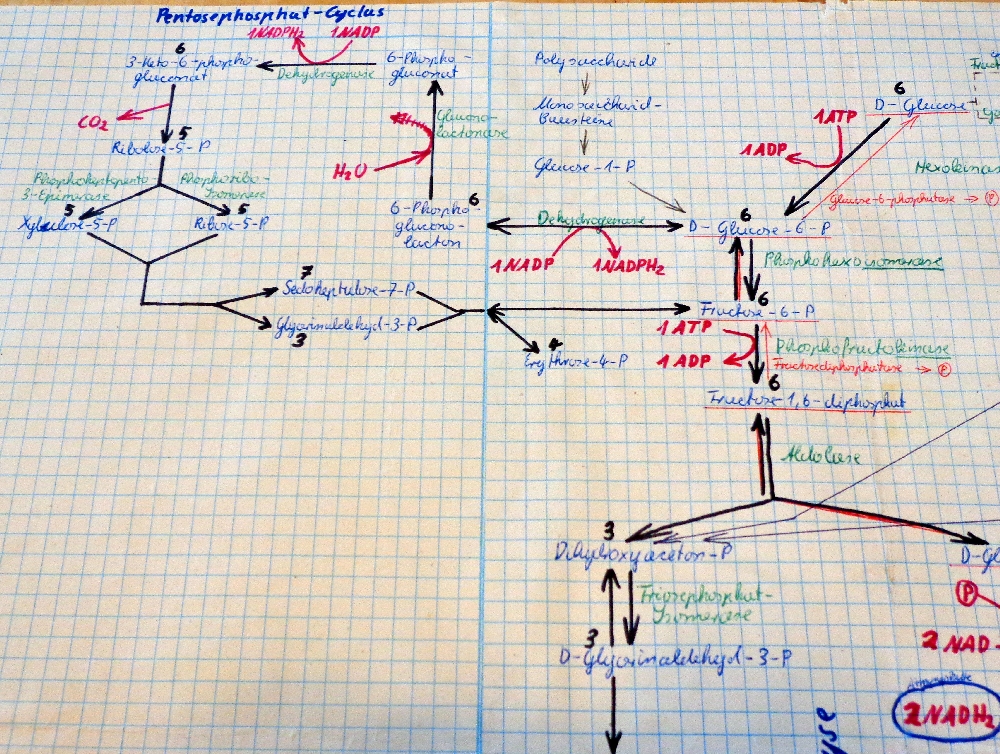 Pentosephosphat-Cyclus
1NADPH₂
1NADP
6
3-Keto-6-phospho-
gluconat
Dehydrogenase
6-Phospho-
gluconat
CO₂
5
Ribulose-5-P
Glucono-
lactonase
H₂O
3-Epimerase
Phosphoribo-
Isomerase
5
Xylulose-5-P
5
Ribose-5-P
6
6-Phospho-
glucono-
lacton
7
Sedoheptulose-7-P
Glycerinaldehyd-3-P
3
4
Erythrose-4-P
Polysaccharide
Monosaccharid-
Bausteine
Glucose-1-P
Dehydrogenase
1NADP
1NADPH₂
6
D-Glucose
1ATP
1ADP
Hexokinas
Glucose-6-phosphatase → P
6
D-Glucose-6-P
Phosphohexoisomerase
6
Fructose-6-P
1 ATP
1 ADP
Phosphofructokinase
Fructosediphosphatase → P
6
Fructose-1,6-diphosphat
Aldolase
3
Dihydroxyaceton-P
D-Gl
Triosephosphat-
Isomerase
3
D-Glycerinaldehyd-3-P
P
2 NAD
2NADH₂
yse